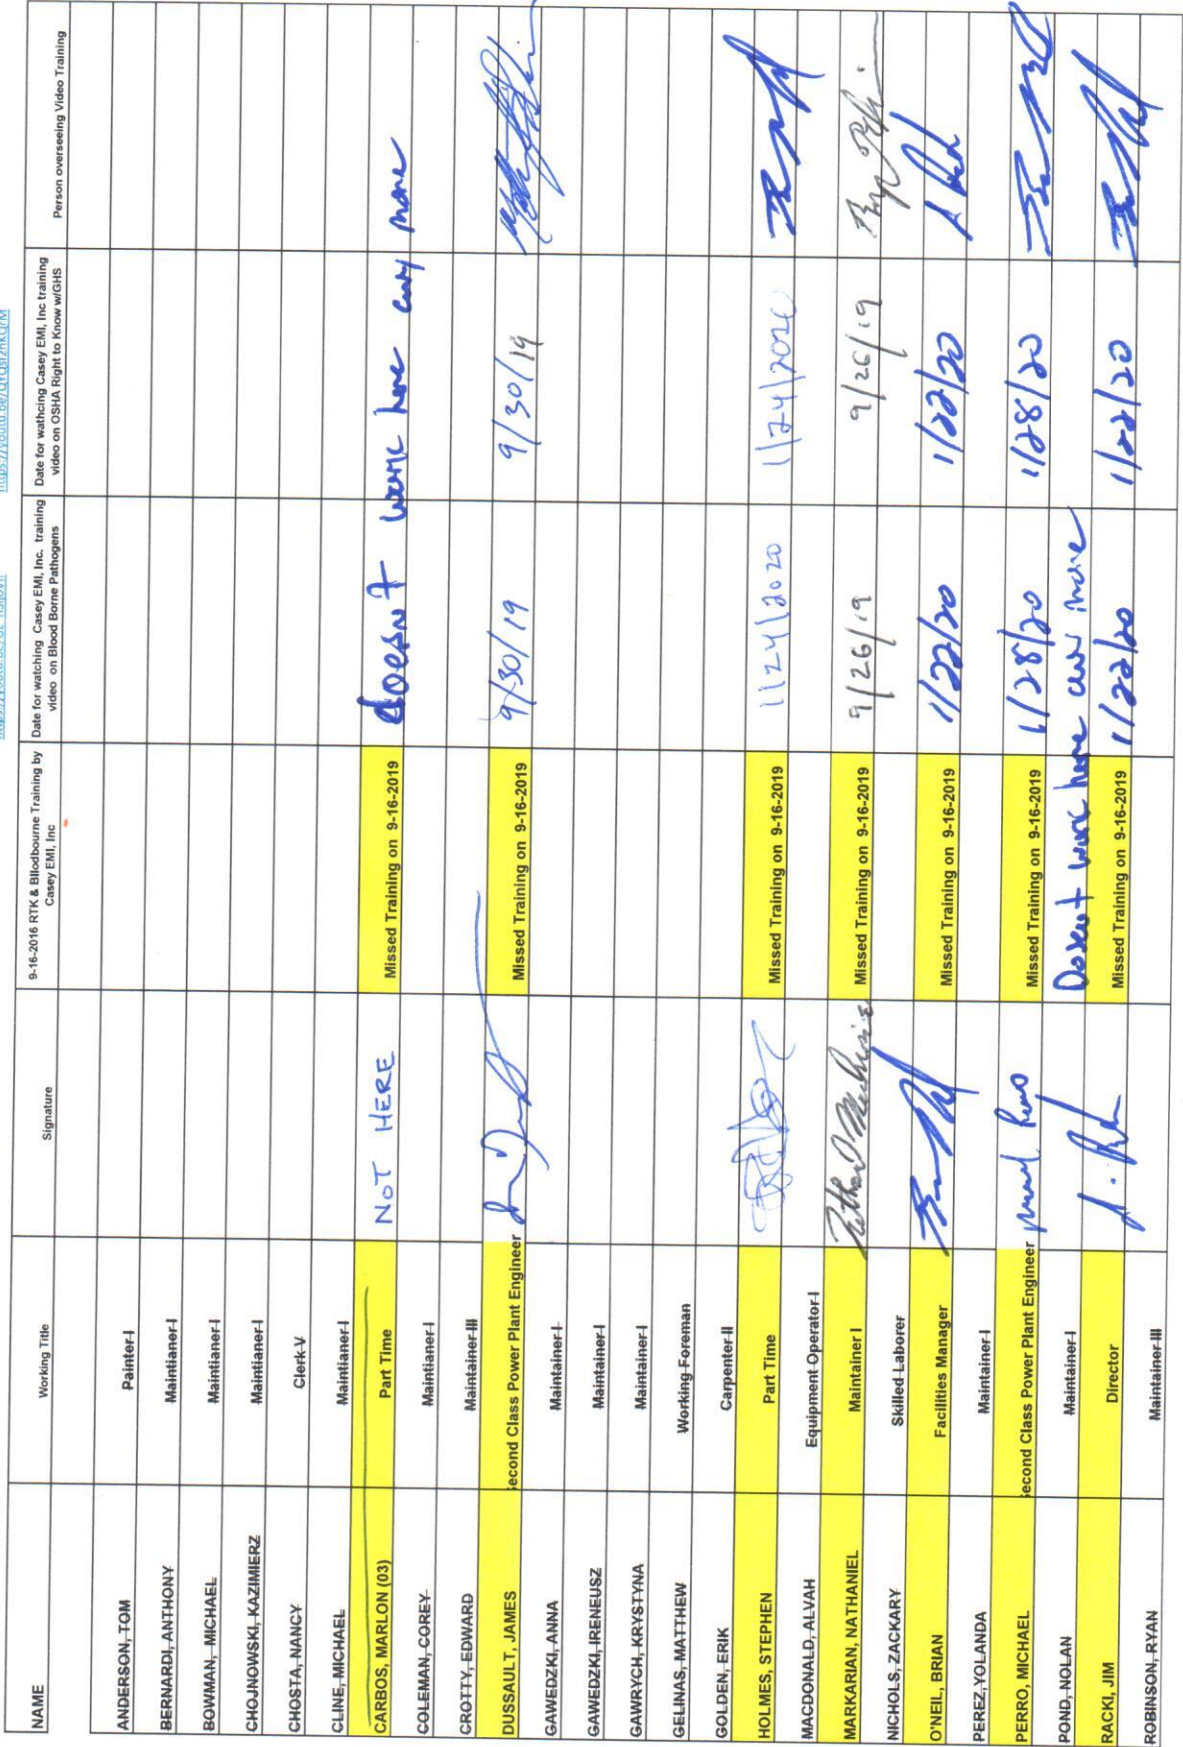 NAME Working Title Signature 9-16-2016 RTK & Bllodbourne Training by Casey EMI, Inc Date for watching Casey EMI, Inc. training video on Blood Borne Pathogens Date for wathcing Casey EMI, Inc training video on OSHA Right to Know w/GHS Person overseeing Video Training
ANDERSON, TOM Painter I
BERNARDI, ANTHONY Maintianer I
BOWMAN, MICHAEL Maintianer I
CHOJNOWSKI, KAZIMIERZ Maintianer I
CHOSTA, NANCY Clerk V
CLINE, MICHAEL Maintianer I
CARBOS, MARLON (03) Part Time NOT HERE Missed Training on 9-16-2019 doesn't work here any more
COLEMAN, COREY Maintianer I
CROTTY, EDWARD Maintainer III
DUSSAULT, JAMES Second Class Power Plant Engineer Missed Training on 9-16-2019 9/30/19 9/30/19
GAWEDZKI, ANNA Maintainer I
GAWEDZKI, IRENEUSZ Maintainer I
GAWRYCH, KRYSTYNA Maintainer I
GELINAS, MATTHEW Working Foreman
GOLDEN, ERIK Carpenter II
HOLMES, STEPHEN Part Time Missed Training on 9-16-2019 1/24/2020 1/24/2020
MACDONALD, ALVAH Equipment Operator I
MARKARIAN, NATHANIEL Maintainer I Missed Training on 9-16-2019 9/26/19 9/26/19
NICHOLS, ZACKARY Skilled Laborer
O'NEIL, BRIAN Facilities Manager Missed Training on 9-16-2019 1/22/20 1/22/20
PEREZ,YOLANDA Maintainer I
PERRO, MICHAEL Second Class Power Plant Engineer Missed Training on 9-16-2019 1/28/20 1/28/20
POND, NOLAN Maintainer I Doesn't work here any more
RACKI, JIM Director Missed Training on 9-16-2019 1/22/20 1/22/20
ROBINSON, RYAN Maintainer III